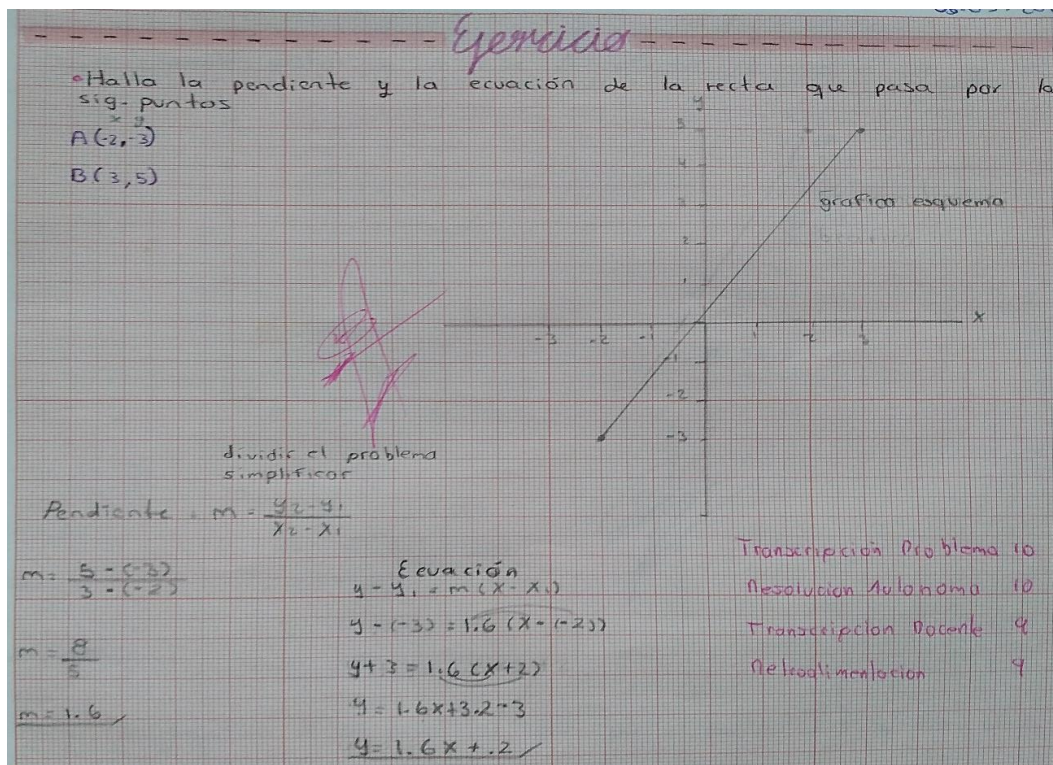 Ejercicio
•Halla la pendiente y la ecuación de la recta que pasa por lo
sig. puntos
x y
A(-2,-3)
B(3,5)
y
5
4
3
2
1
grafica esquema
x
-3 -2 -1 1 2 3
-1
-2
-3
dividir el problema
simplificar
Pendiente = m = y2-y1 / x2-x1
m= 5-(-3) / 3-(-2)
m= 8 / 5
m=1.6
Ecuación
y-y1=m(x-x1)
y-(-3)=1.6(x-(-2))
y+3=1.6(x+2)
y=1.6x+3.2-3
y=1.6x+.2
Transcripción Problema 10
Resolucion Autonoma 10
Transcripcion Docente 9
Retroalimentacion 9